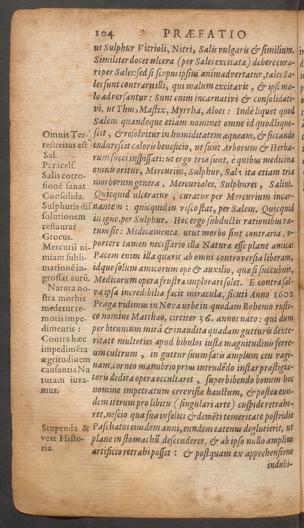 104 PRÆFATIO
ut Sulphur Vitrioli, Nitri, Salis vulgaris & similium.
Similiter docet ulcera (per Sales excitata) debere cura-
ri per Sales: sed si scopus ipsius animadvertatur, tales Sa-
les sunt contrarii illi, qui malum excitavit, & ipsi ma-
lo adversantur: Sunt enim incarnativi & consolidati-
vi, ut Thus, Mastix, Myrrha, Aloes: Inde liquet quod
Salem quandoque etiam nominet omne id quod lique-
scit, & resolvitur in humiditatem aqueam, & siccando
indurescit caloris beneficio, ut sunt Arborum & Herba-
rum succi inspissati: ut ergo tria sunt, è quibus medicina
omnis oritur, Mercurius, Sulphur, Sal: ita etiam tria
morborum genera, Mercuriales, Sulphurei, Salini.
Quicquid ulceratur, curatur per Mercurium incar-
nantem: quicquid in visco stat, per Salem, Quicquid
in igne, per Sulphur. Hæc ergo subductis rationibus ra-
tum sit: Medicamenta, utut morbo sint contraria, o-
portere tamen necessario illa Naturæ esse plane amica:
Pacem enim illa quærit ab omni controversia liberam,
idque solum amicorum ope & auxilio, quæ si succubuit,
Medicorum opera frustra implorari solet. E contra sal-
va ipsa incredibilia facit miracula, sicuti Anno 1602
Pragæ vidimus in Nova urbe in quodam Bohemo rusti-
co nomine Matthæo, circiter 36. annos nato: qui dum
per biennium mira & inaudita quadam gutturis dexte-
ritate multoties apud bibulos justæ magnitudinis ferre-
um cultrum, in guttur suum satis amplum ceu vagi-
nam, corneo manubrio prius intrudendo instar præstigia-
toris dedita opera occultaret, superbibendo bonum hoc
nomine impetratum cerevisiæ haustum, & postea eun-
dem iterum pro libitu (singulari arte) cuspide retrahe-
ret, nescio qua sua insolei & demēti temeritate postridie
Paschatos eiusdem anni, eundem eatenus deglutierit, ut
plane in stomachū descenderet, & ab ipso nullo amplius
artificio retrahi possit: & postquam ex apprehensione
indubi-
Omnis Ter-
restreitas est
Sal.
Paricels.
Salis corro-
sionē sanat
Consolida.
Sulphuris dis-
solutionem
restaurat
Crocus.
Mercurii ni-
miam subli-
mationē in-
grossat aurū.
Natura no-
stra morbis
medetur re-
motis impe-
dimentis:
Contra hæc
impedimēta
ægritudinem
causantia Na-
turam juva-
mus.
Stupenda &
vera Histo-
ria.